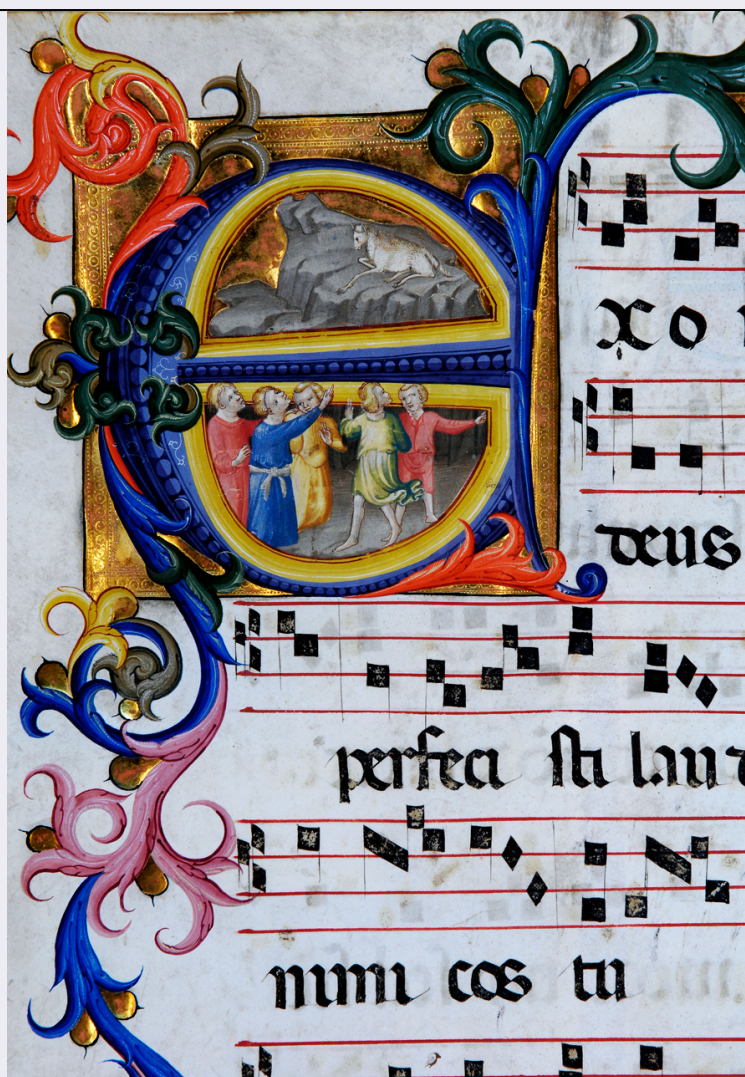 Exo
deus
perfeci sti lau
nimi cos tu